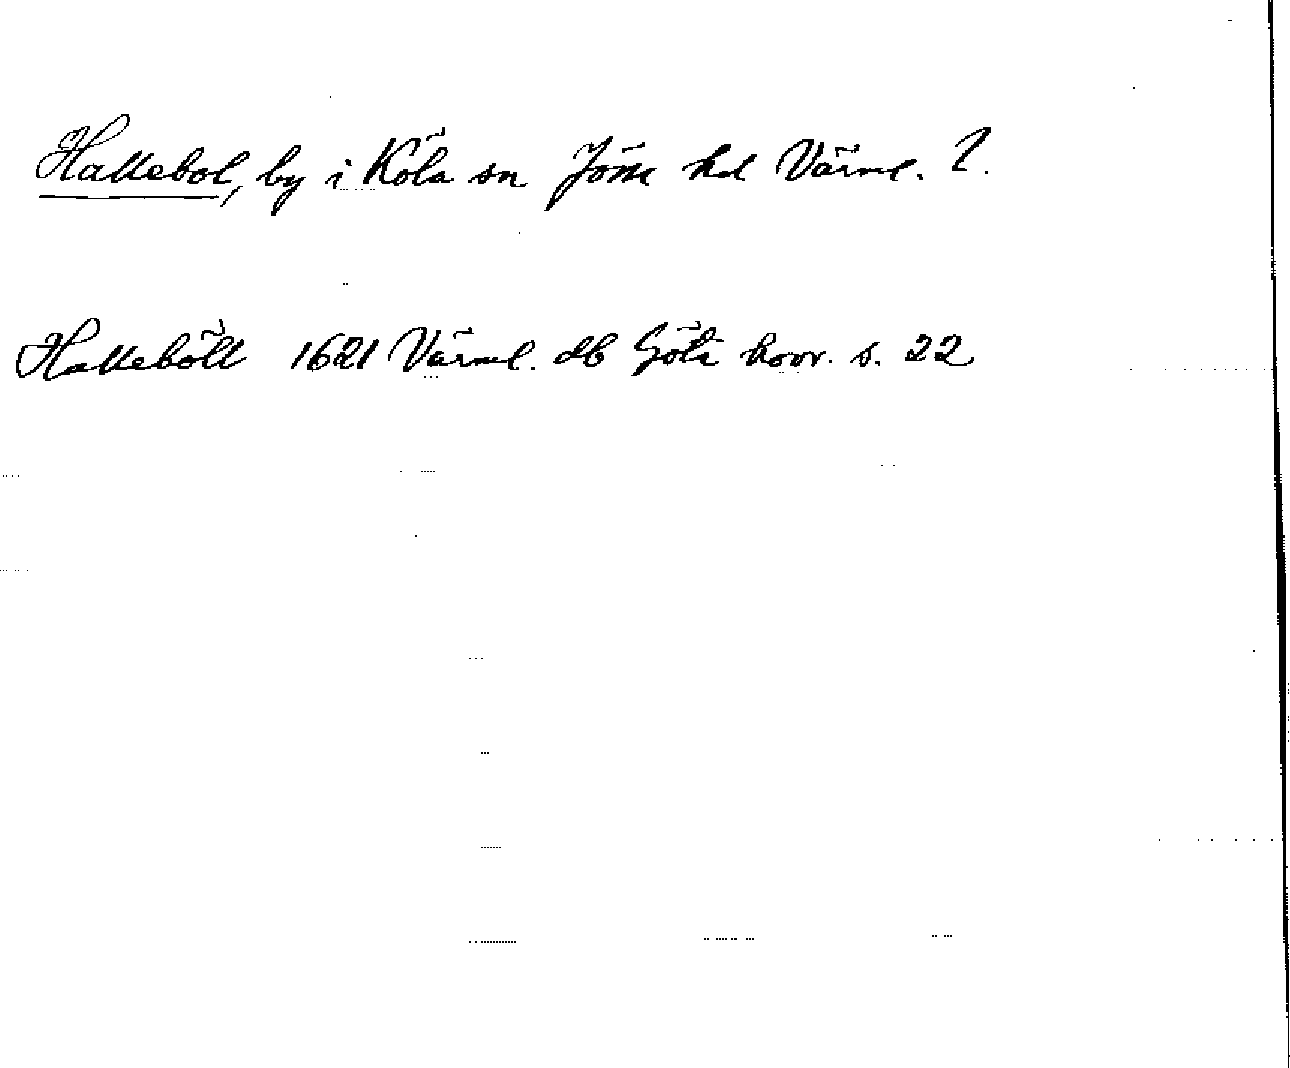 Hallebol, by i Köla sn Jösse hd Värml. ?.
Halleböll 1621 Värml. db Göta hovr. s. 22